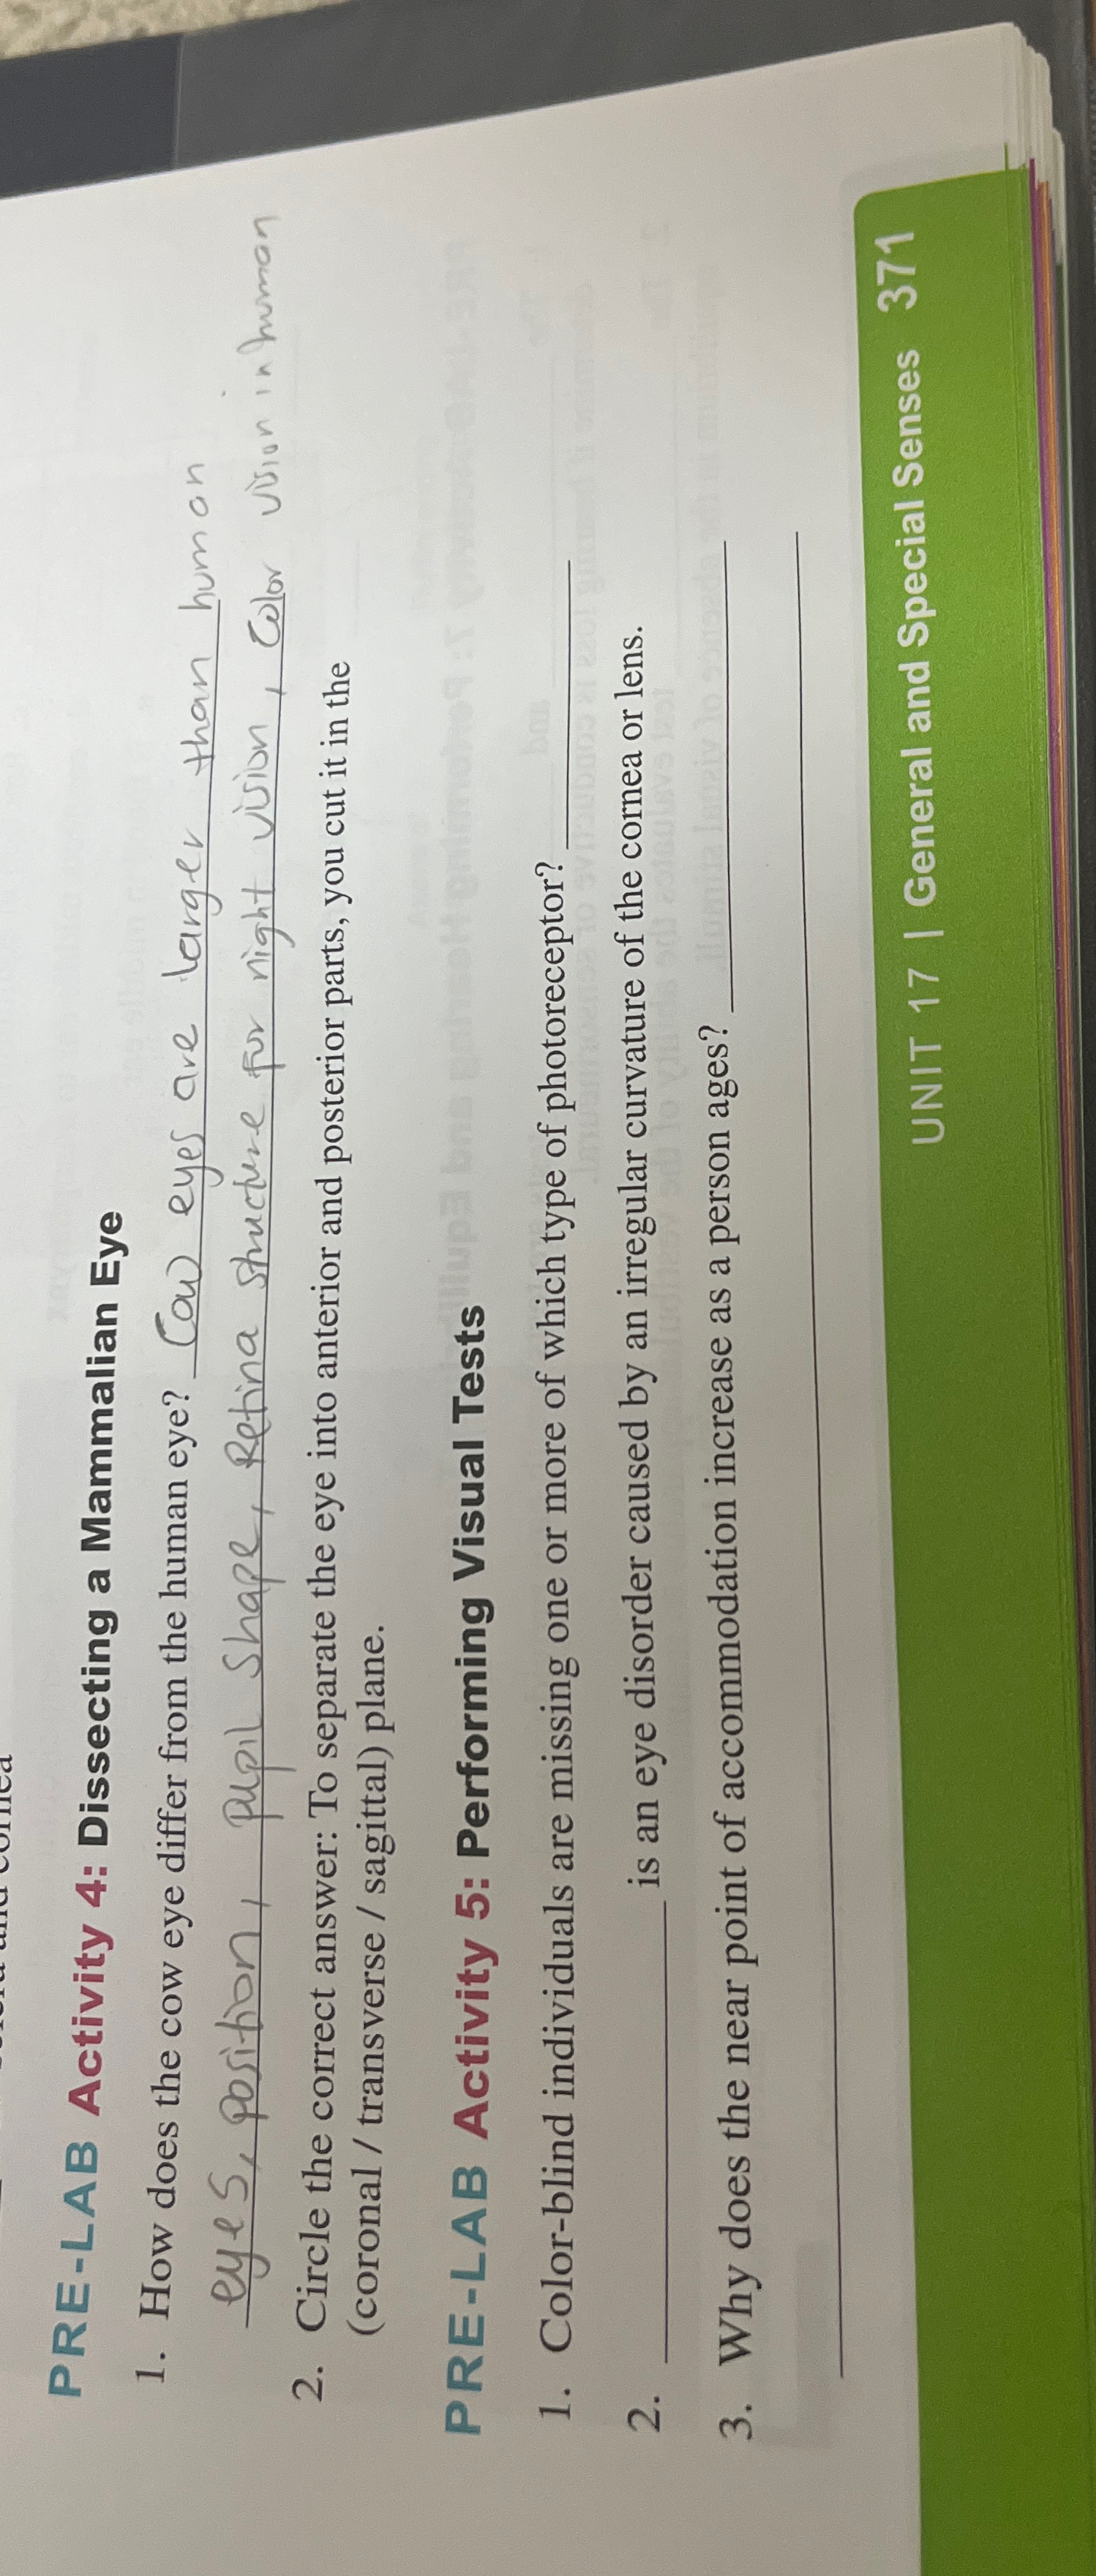 PRE-LAB Activity 4: Dissecting a Mammalian Eye
1. How does the cow eye differ from the human eye? Cow eyes are larger than human
eyes, position, pupil shape, Retina structure for night vision, Color vision in human
2. Circle the correct answer: To separate the eye into anterior and posterior parts, you cut it in the
(coronal / transverse / sagittal) plane.
PRE-LAB Activity 5: Performing Visual Tests
1. Color-blind individuals are missing one or more of which type of photoreceptor?
2. is an eye disorder caused by an irregular curvature of the cornea or lens.
3. Why does the near point of accommodation increase as a person ages?
UNIT 17 | General and Special Senses 371